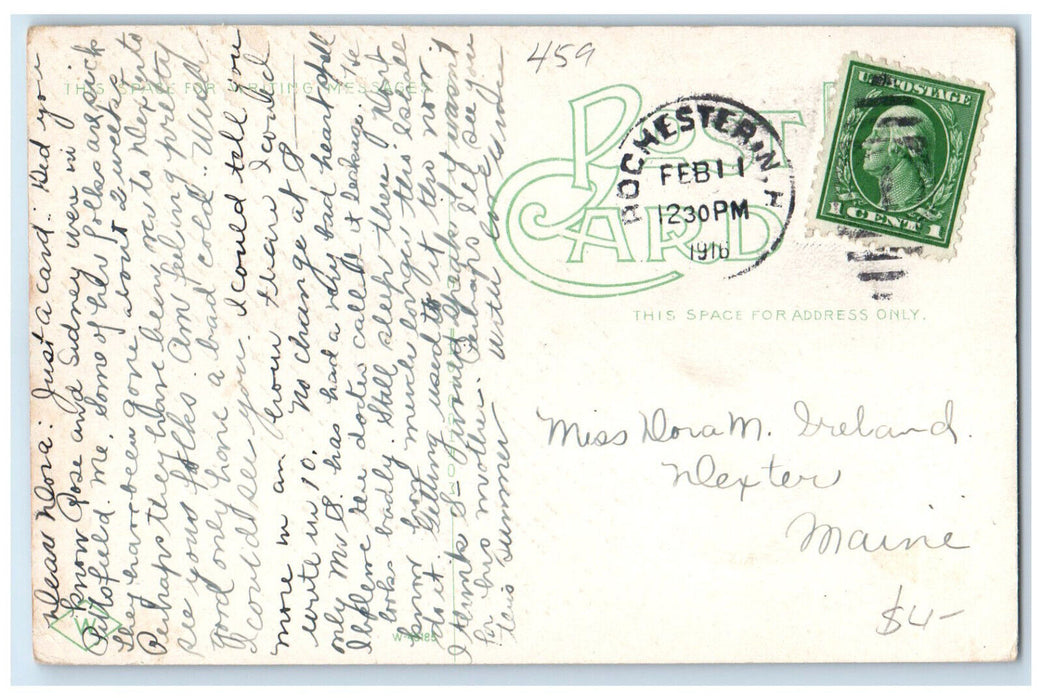 459
THIS SPACE FOR WRITING MESSAGES
POST CARD
ROCHESTER, N.H.
FEB 11
12 30 PM
1916
U.S. POSTAGE
1 CENT 1
THIS SPACE FOR ADDRESS ONLY.
Miss Dora M. Ireland.
Dexter
Maine
$4-
W
Dear Dora: Just a card. Did you
know Rose and Sidney were in
Pittsfield Me. Some of her folks are sick
They have been gone about 2 weeks
Perhaps they have been over to Dexter to
see your folks Am feeling pretty
good only have a bad cold. Wish
I could see you. I could tell you
more in an hour than I could
write in 10. No change at S-
only Mr S. has had a very bad heart spell
I believe the doctor calls it leakage. He
looks badly. Still sleep there. Dont
know how much longer this is
do it Getting used to it too now
I think S- would if it wasnt
for his mother. Perhaps I'll see you
this summer